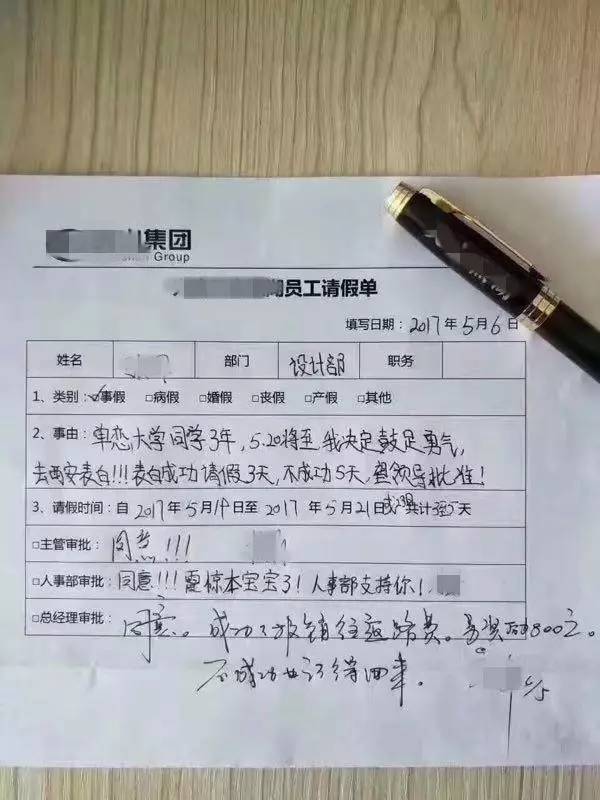 集团
Group
员工请假单
填写日期：2017年5月6日
姓名 部门 设计部 职务
1、类别：☑事假 □病假 □婚假 □丧假 □产假 □其他
2、事由：单恋大学同学3年，5.20将至我决定鼓足勇气，
去西安表白!!!表白成功请假3天，不成功5天，望领导批准！
3、请假时间：自2017年5月19日至2017年5月21日或共计3至5天
□主管审批：同意!!!
□人事部审批：同意!!!震惊本宝宝了！人事部支持你！
□总经理审批：同意。成功了报销往返路费。另奖800元。
不成功也记得回来。
6/5